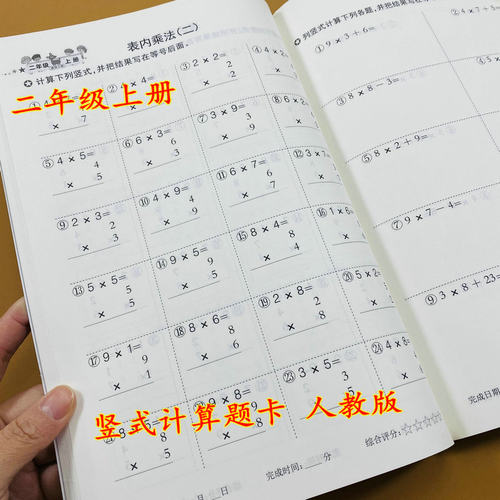 二年级 上册
表内乘法(二)
计算下列竖式,并把结果写在等号后面。
二年级上册
③ 3×
④ 4×
× 7
⑤ 4×5=
4
× 5
⑥ 6×3=
6
× 3
⑦ 3×9=
3
× 9
⑧ 6×2
⑨ 2×3=
2
× 3
⑩ 4×9=
4
× 9
⑪ 6×7=
6
× 7
⑫ 3×2=
×
⑬ 5×5=
5
× 5
⑭ 9×5=
9
× 5
⑮ 8×4=
8
× 4
⑯ 1×6
×
⑰ 9×1=
9
× 1
⑱ 8×6=
8
× 6
⑲ 2×8=
2
× 8
⑳ 5×2
×
8×5=
× 5
9×8=
9
× 8
㉓ 3×5=
3
× 5
㉔ 4×8
×
竖式计算题卡 人教版
月 日
完成时间: 分
综合评分:☆☆☆☆
列竖式计算下列各题,并把结果
① 9×3+6=
② 7×5+
③ 8×8-3=
④
⑤ 8×2+9=
⑦ 9×7-4=
⑨ 3×8+23=
完成日期